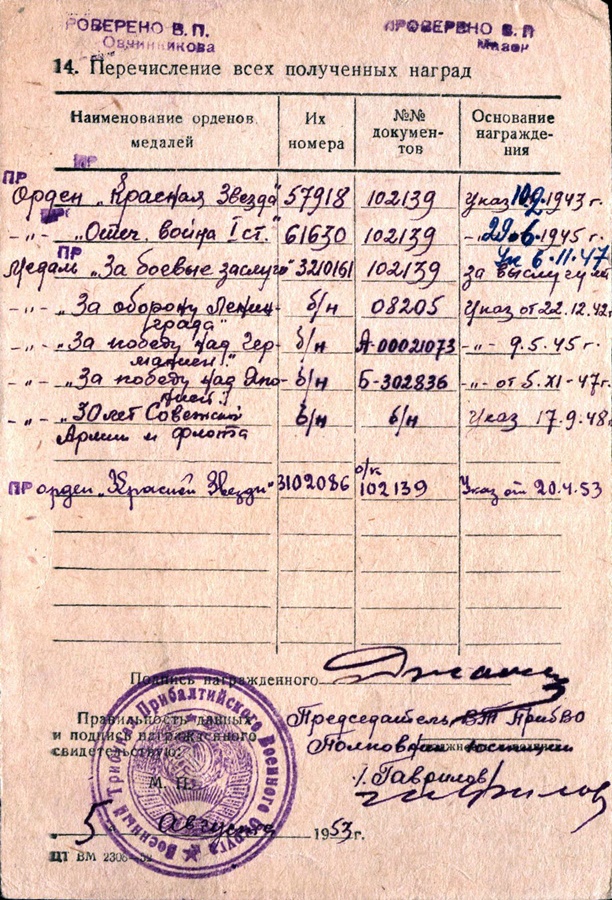 ПРОВЕРЕНО В.П.
Овчинникова
ПРОВЕРЕНО В.П
Мазер
14. Перечисление всех полученных наград
Наименование орденов, медалей | Их номера | №№ документов | Основание награждения
ПР
ПР Орден „Красная Звезда" 57918 102139 Указ 1943 г.
ПР -„- „Отеч. война I ст." 61630 102139 -„- 29.6.1945 г.
ПР Ук 6.11.47
Медаль „За боевые заслуги" 3210161 102139 за выслугу лет
-„- „За оборону Ленин- б/н 08205 Указ от 22.12.42г.
града"
-„- „За победу над Гер- б/н А-00021073 -„- 9.5.45г.
манией"
-„- „За победу над Япо- б/н Б-302836 -„- от 5.XI-47г.
нией"
-„- „30 лет Советской б/н б/н Указ 17.9.48г.
Армии и флота
о/к
ПР орден „Красной Звезды" 3102086 102139 Указ от 20.4.53
Подпись награжденного
Правильность данных
и подпись награжденного
свидетельствую:
Председатель ВТ ПрибВО
Полковник юстиции
/Гаврилов/
Гаврилов
М. П.
Военный Трибунал Прибалтийского Военного Округа
„5" Августа 1953г.
ЦТ ВМ 2306—52